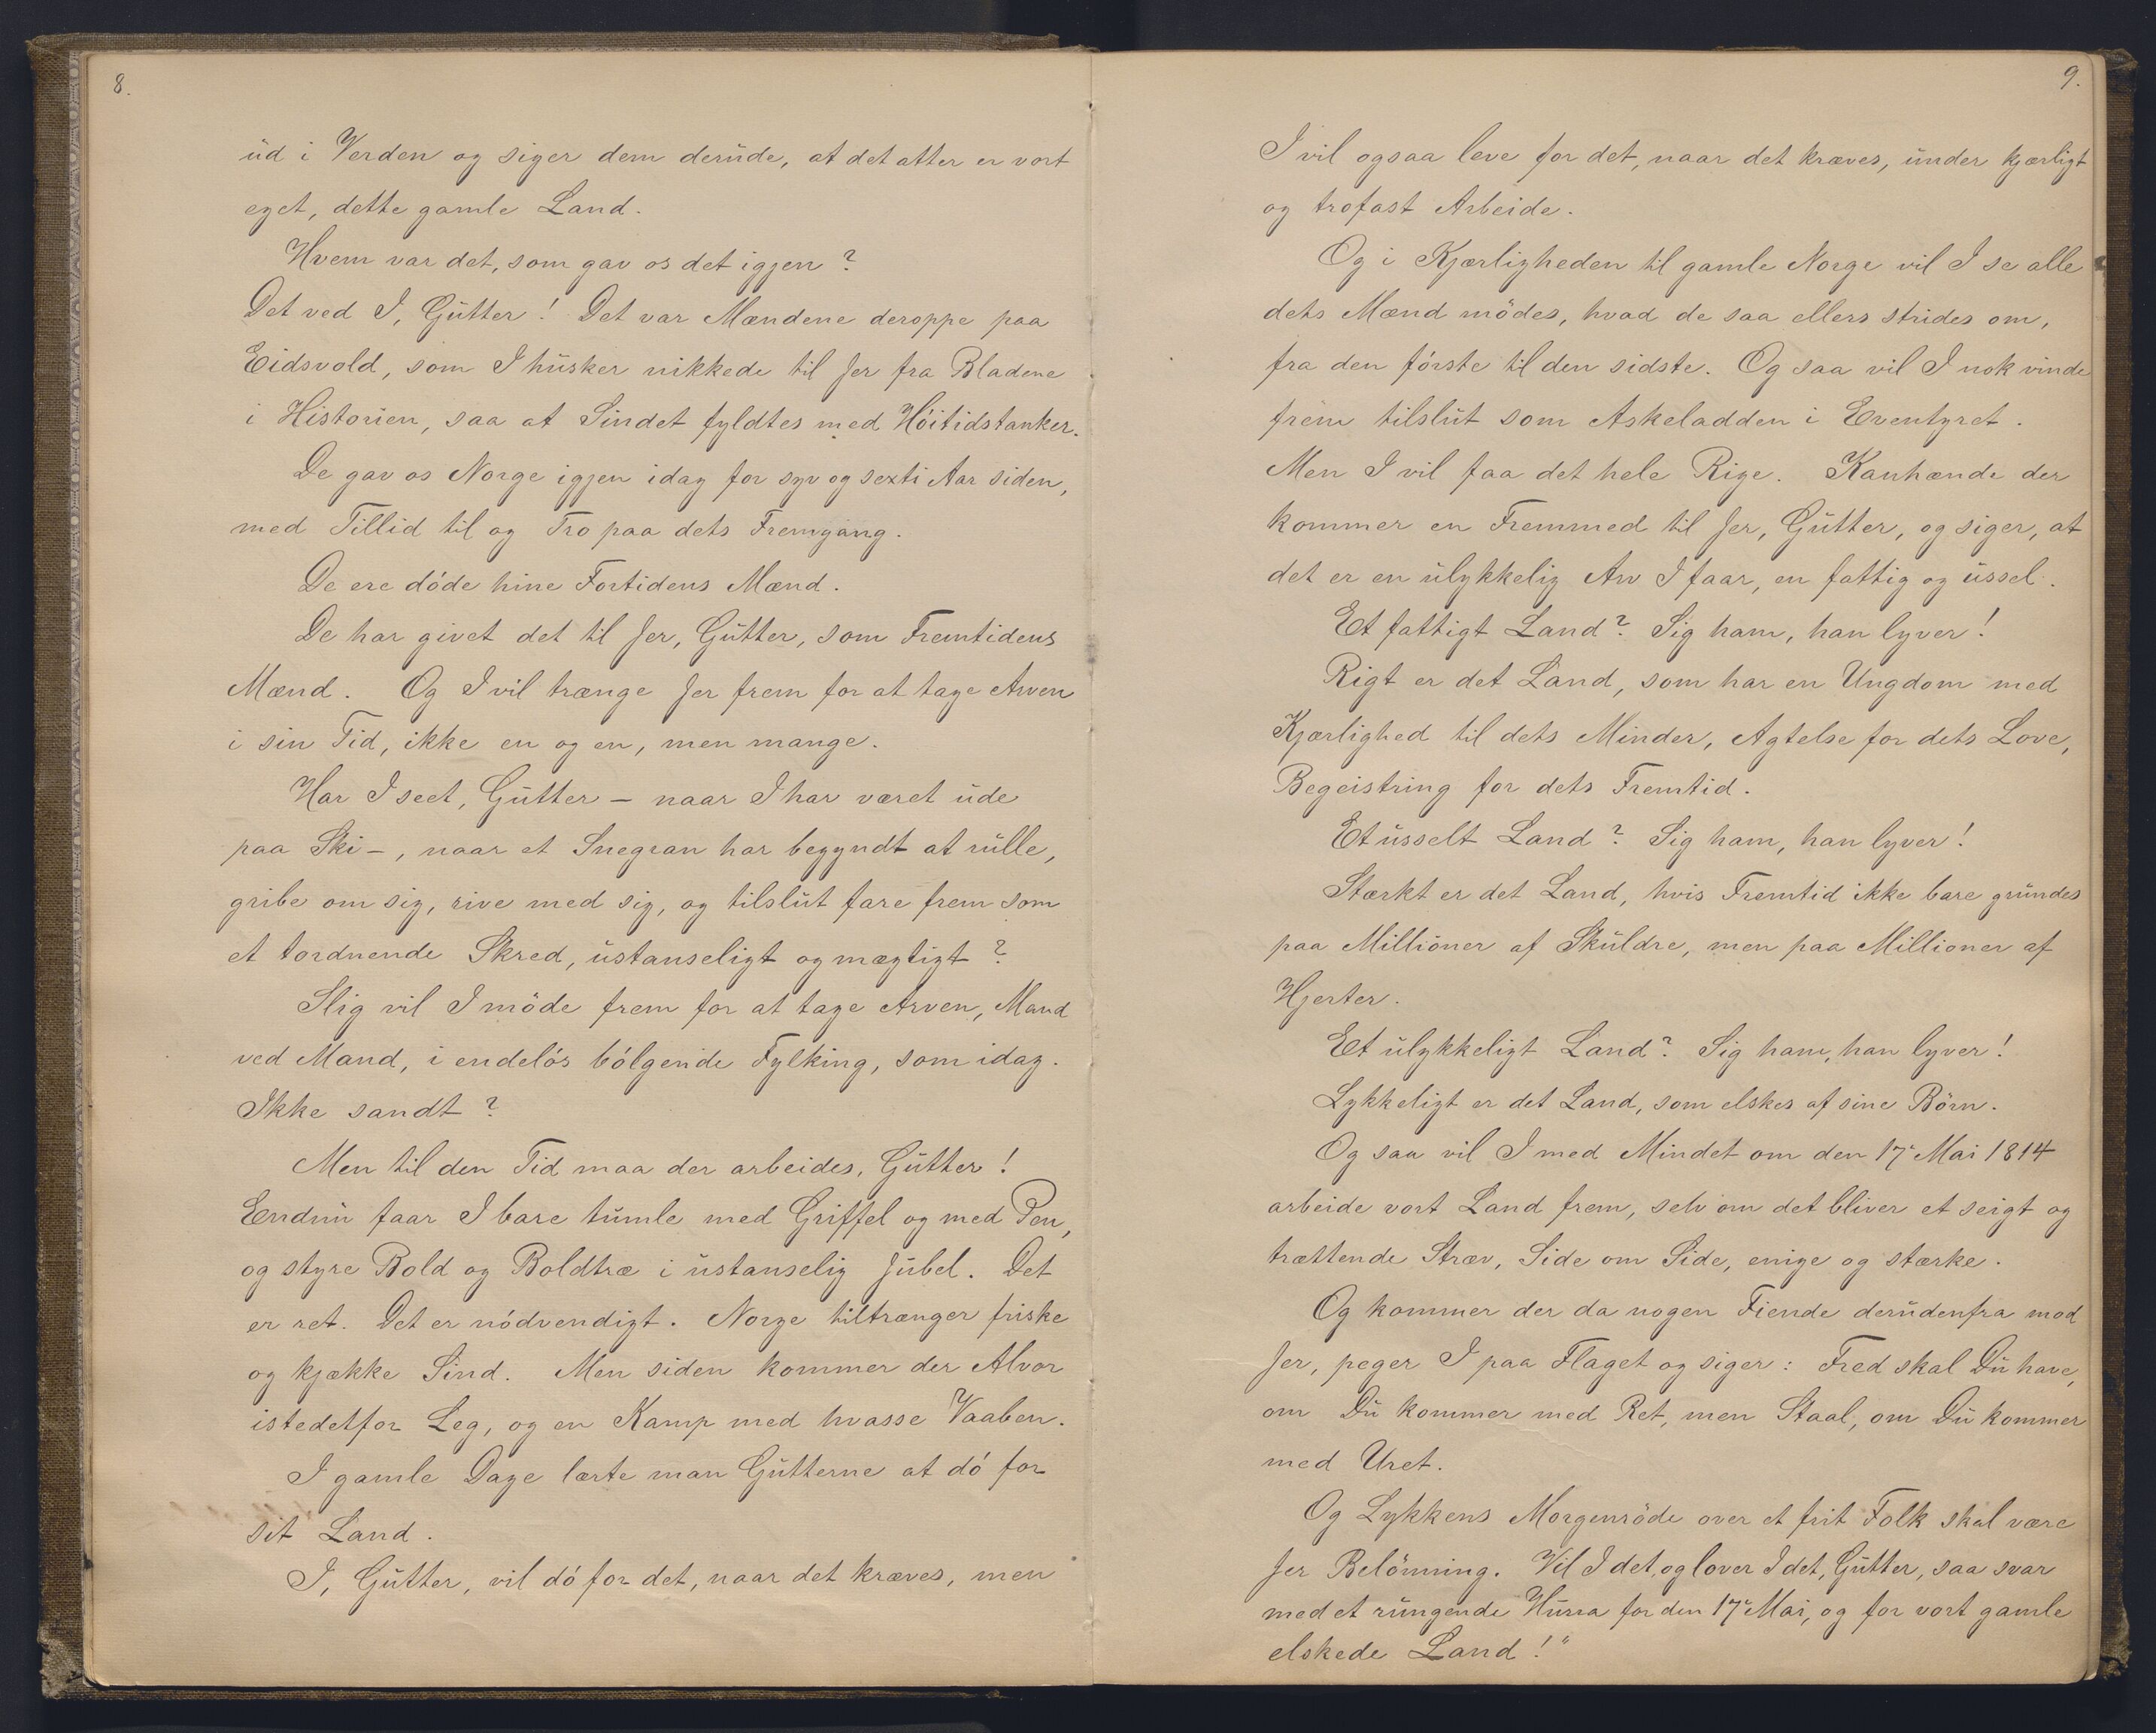 8.
ud i Verden og siger dem derude, at det atter er vort
eget, dette gamle Land.
Hvem var det, som gav os det igjen?
Det ved I, Gutter! Det var Mændene deroppe paa
Eidsvold, som I husker nikkede til Jer fra Bladene
i Historien, saa at Sindet fyldtes med Höitidstanker.
De gav os Norge igjen idag for syv og sexti Aar siden,
med Tillid til og Tro paa dets Fremgang.
De ere döde hine Fortidens Mænd.
De har givet det til Jer, Gutter, som Fremtidens
Mænd. Og I vil trænge Jer frem for at tage Arven
i sin Tid, ikke en og en, men mange.
Har I seet, Gutter – naar I har været ude
paa Ski –, naar et Snegran har begyndt at rulle,
gribe om sig, rive med sig, og tilslut fare frem som
et tordnende Skred, ustanseligt og mægtigt?
Slig vil I möde frem for at tage Arven, Mand
ved Mand, i endelös bölgende Fylking, som idag.
Ikke sandt?
Men til den Tid maa der arbeides, Gutter!
Endnu faar I bare tumle med Griffel og med Pen,
og styre Bold og Boldtræ i ustanselig Jubel. Det
er ret. Det er nödvendigt. Norge tiltrænger friske
og kjække Sind. Men siden kommer der Alvor
istedetfor Leg, og en Kamp med hvasse Vaaben.
I gamle Dage lærte man Gutterne at dö for
sit Land.
I, Gutter, vil dö for det, naar det kræves, men
9.
I vil ogsaa leve for det, naar det kræves, under kjærligt
og trofast Arbeide.
Og i Kjærligheden til gamle Norge vil I se alle
dets Mænd mödes, hvad de saa ellers strides om,
fra den förste til den sidste. Og saa vil I nok vinde
frem tilslut som Askeladden i Eventyret.
Men I vil faa det hele Rige. Kanhænde der
kommer en Fremmed til Jer, Gutter, og siger, at
det er en ulykkelig Arv I faar, en fattig og ussel.
Et fattigt Land? Sig ham, han lyver!
Rigt er det Land, som har en Ungdom med
Kjærlighed til dets Minder, Agtelse for dets Love,
Begeistring for dets Fremtid.
Et usselt Land? Sig ham, han lyver!
Stærkt er det Land, hvis Fremtid ikke bare grundes
paa Millioner af Skuldre, men paa Millioner af
Hjerter.
Et ulykkeligt Land? Sig ham, han lyver!
Lykkeligt er det Land, som elskes af sine Börn.
Og saa vil I med Mindet om den 17 Mai 1814
arbeide vort Land frem, selv om det bliver et seigt og
trættende Stræv, Side om Side, enige og stærke.
Og kommer der da nogen Fiende derudenfra mod
Jer, peger I paa Flaget og siger: Fred skal Du have,
om Du kommer med Ret, men Staal, om Du kommer
med Uret.
Og Lykkens Morgenröde over et frit Folk skal være
Jer Belönning. Vil I det, og lover I det, Gutter, saa svar
med et rungende Hurra for den 17 Mai, og for vort gamle
elskede Land!"